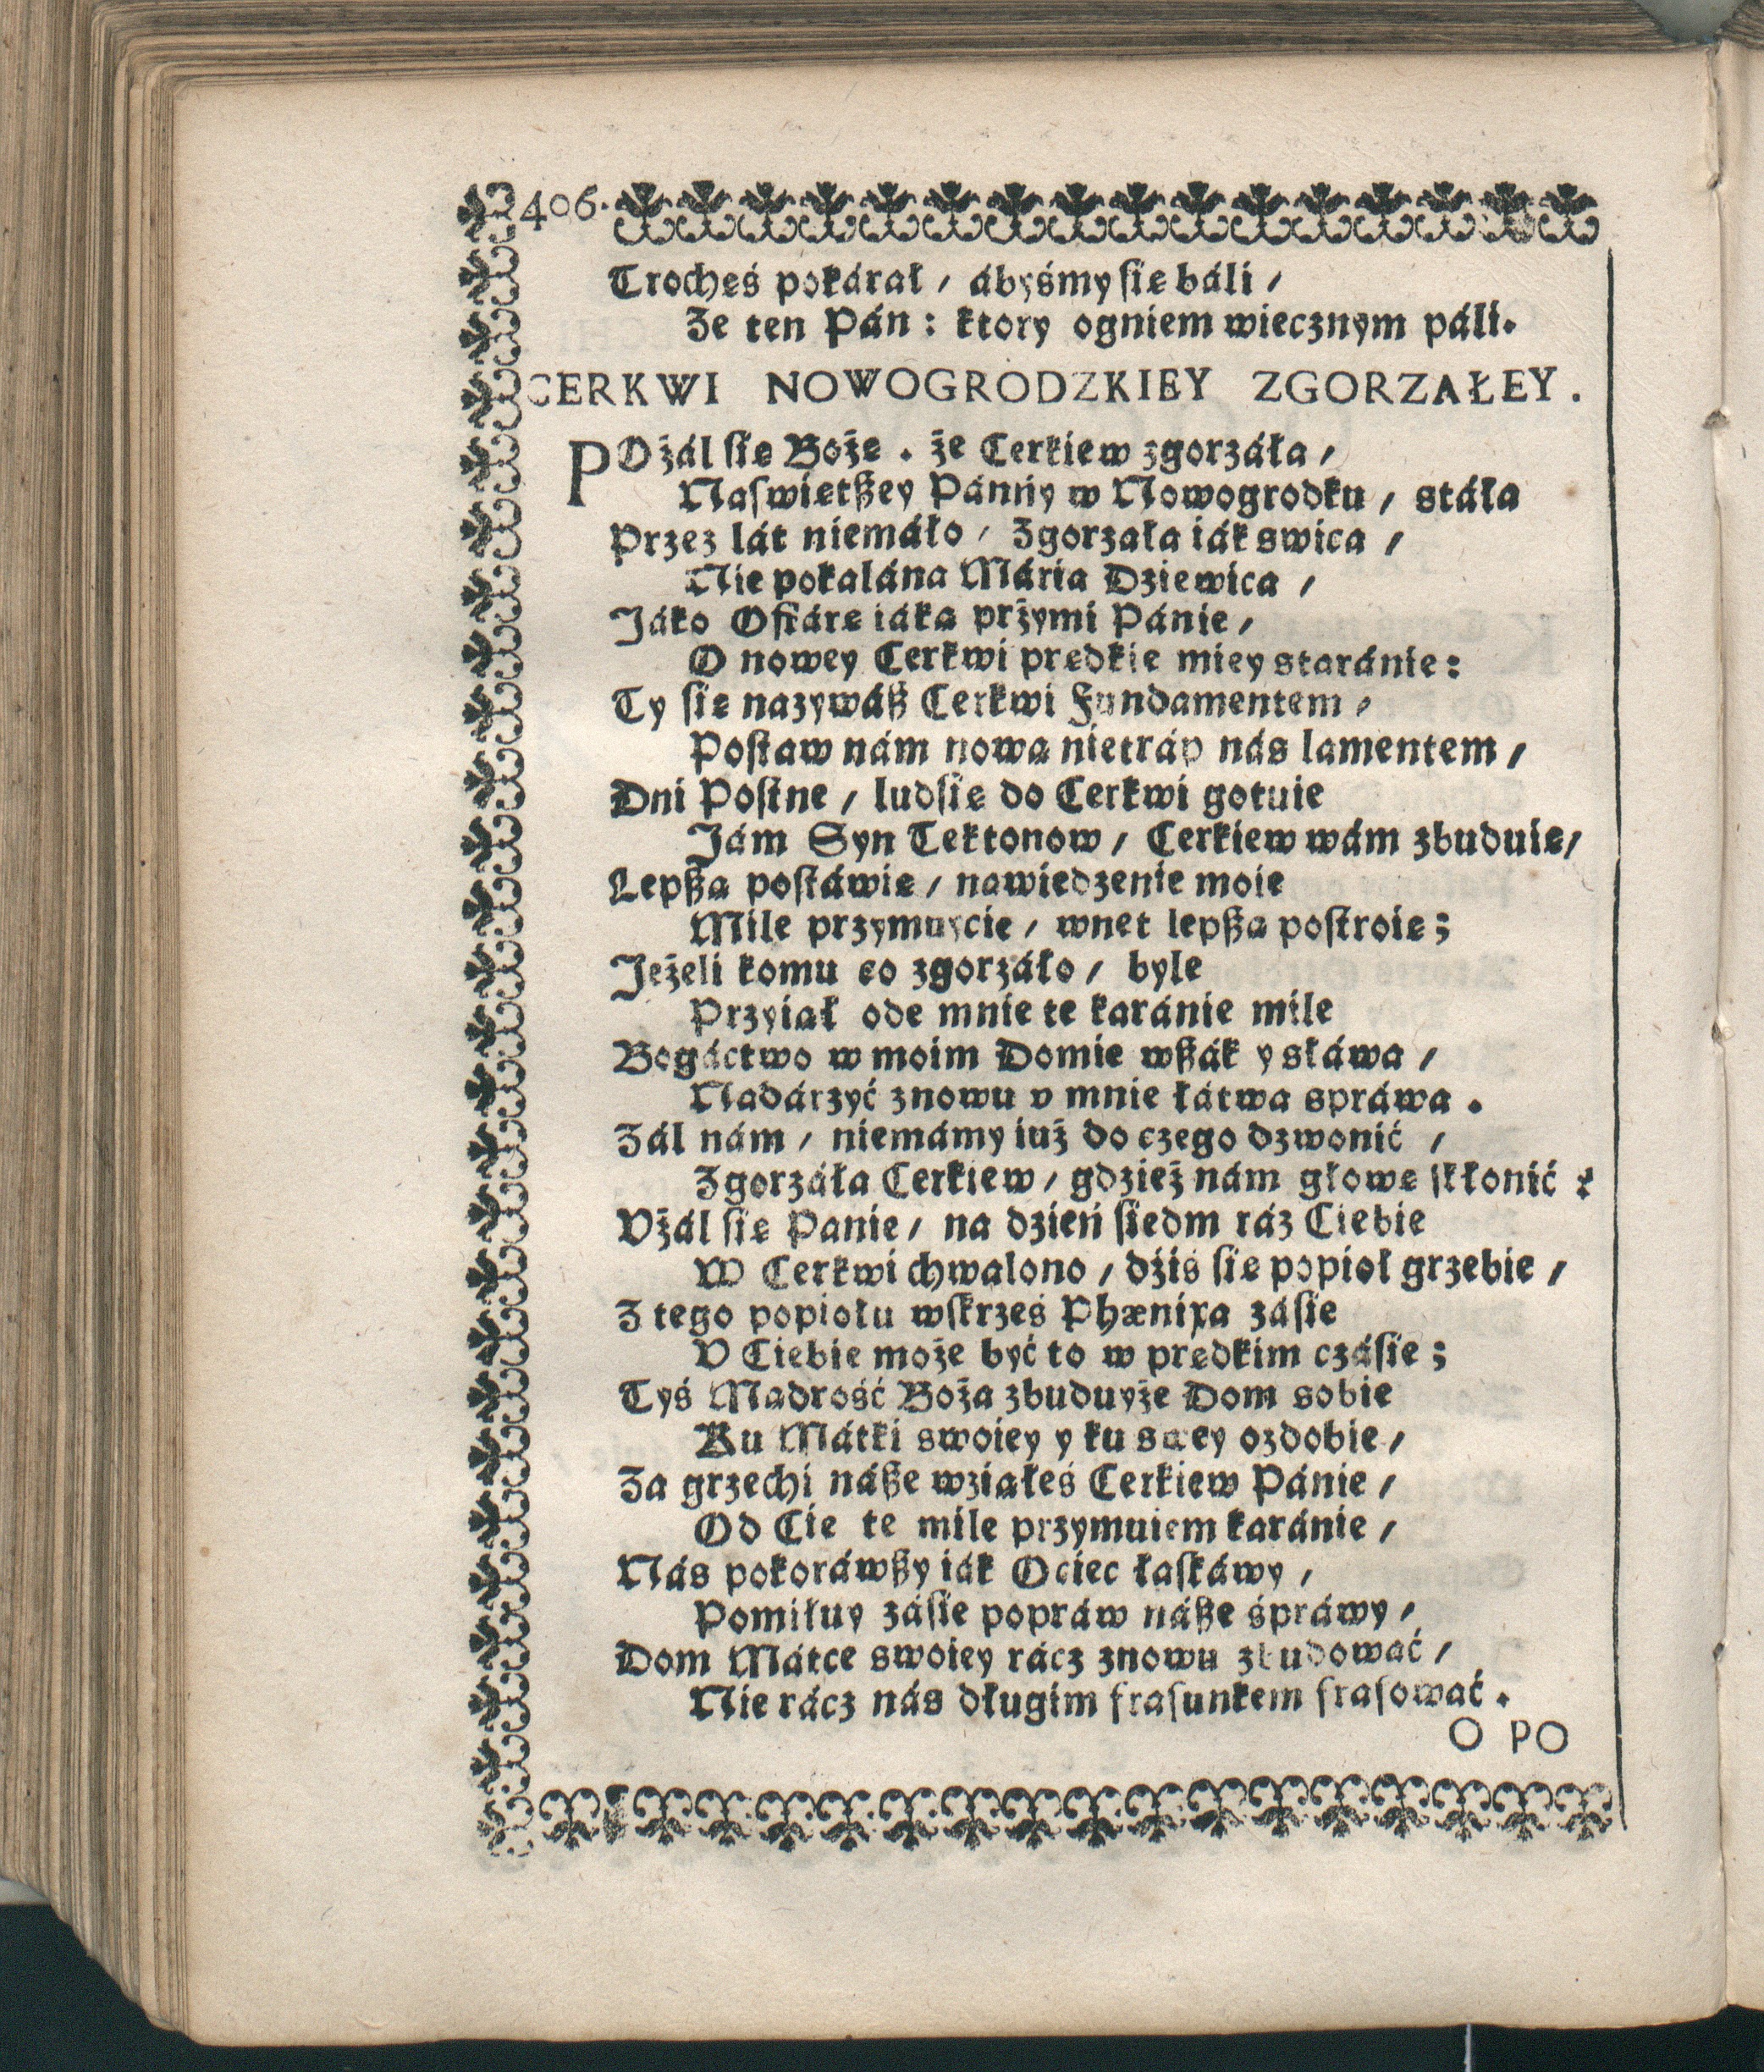 406.
Trochęś pokárał / ábyśmy się báli /
Ze ten Pán : ktory ogniem wiecznym páli.
CERKWI NOWOGRODZKIEY ZGORZAŁEY.
POżál się Boże . że Cerkiew zgorzáła /
Naſwiętßey Pánny w Nowogrodku / stáła
Przez lát niemáło / Zgorzała iák swica /
Nie pokalána Mária Dziewica /
Jáko Ofiárę iáką przymi Pánie /
O nowey Cerkwi prędkie miey staránie :
Ty się nazywáß Cerkwi Fundamentem /
Poſtaw nám nową nietráp nás lamentem /
Dni Poſtne / lud się do Cerkwi gotuie
Jám Syn Tektonow / Cerkiew wám zbuduię /
Lepßą poſtáwię / nawiedzenie moie
Mile przymuycie / wnet lepßą poſtroię ;
Jeżeli komu co zgorzáło / byle
Przyiął ode mnie te karánie mile
Bogáctwo w moim Domie wßák y słáwa /
Nadárzyć znowu v mnie łátwa spráwa .
Zál nám / niemámy iuż do czego dzwonić /
Zgorzáła Cerkiew / gdzież nám głowę ſkłonić ?
Vżál się Panie / na dzień ſiedm ráz Ciebie
W Cerkwi chwalono / dźiś się popioł grzebie /
Z tego popiołu wſkrześ Phænixa záſie
V Ciebie może być to w prędkim czáſie ;
Tyś Mądrość Boża zbuduyże Dom sobie
Ku Mátki swoiey y ku swey ozdobie /
Za grzechi náße wziąłeś Cerkiew Pánie /
Od Cie te mile przymuiem karánie /
Nás pokoráwßy iák Ociec łaſkáwy /
Pomiłuy záſie popráw náße spráwy /
Dom Mátce swoiey rácz znowu zbudować /
Nie rácz nás długim fraſunkem fraſować .
O PO